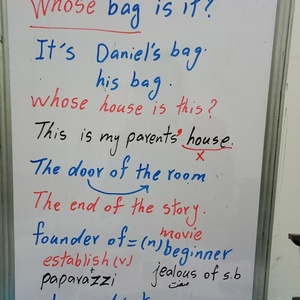 Whose bag is it?
It's Daniel's bag.
his bag.
whose house is this?
This is my parents' house.
x
The door of the room
The end of the story.
movie
founder of = (n) beginner
establish (v)
paparazzi jealous of s.b